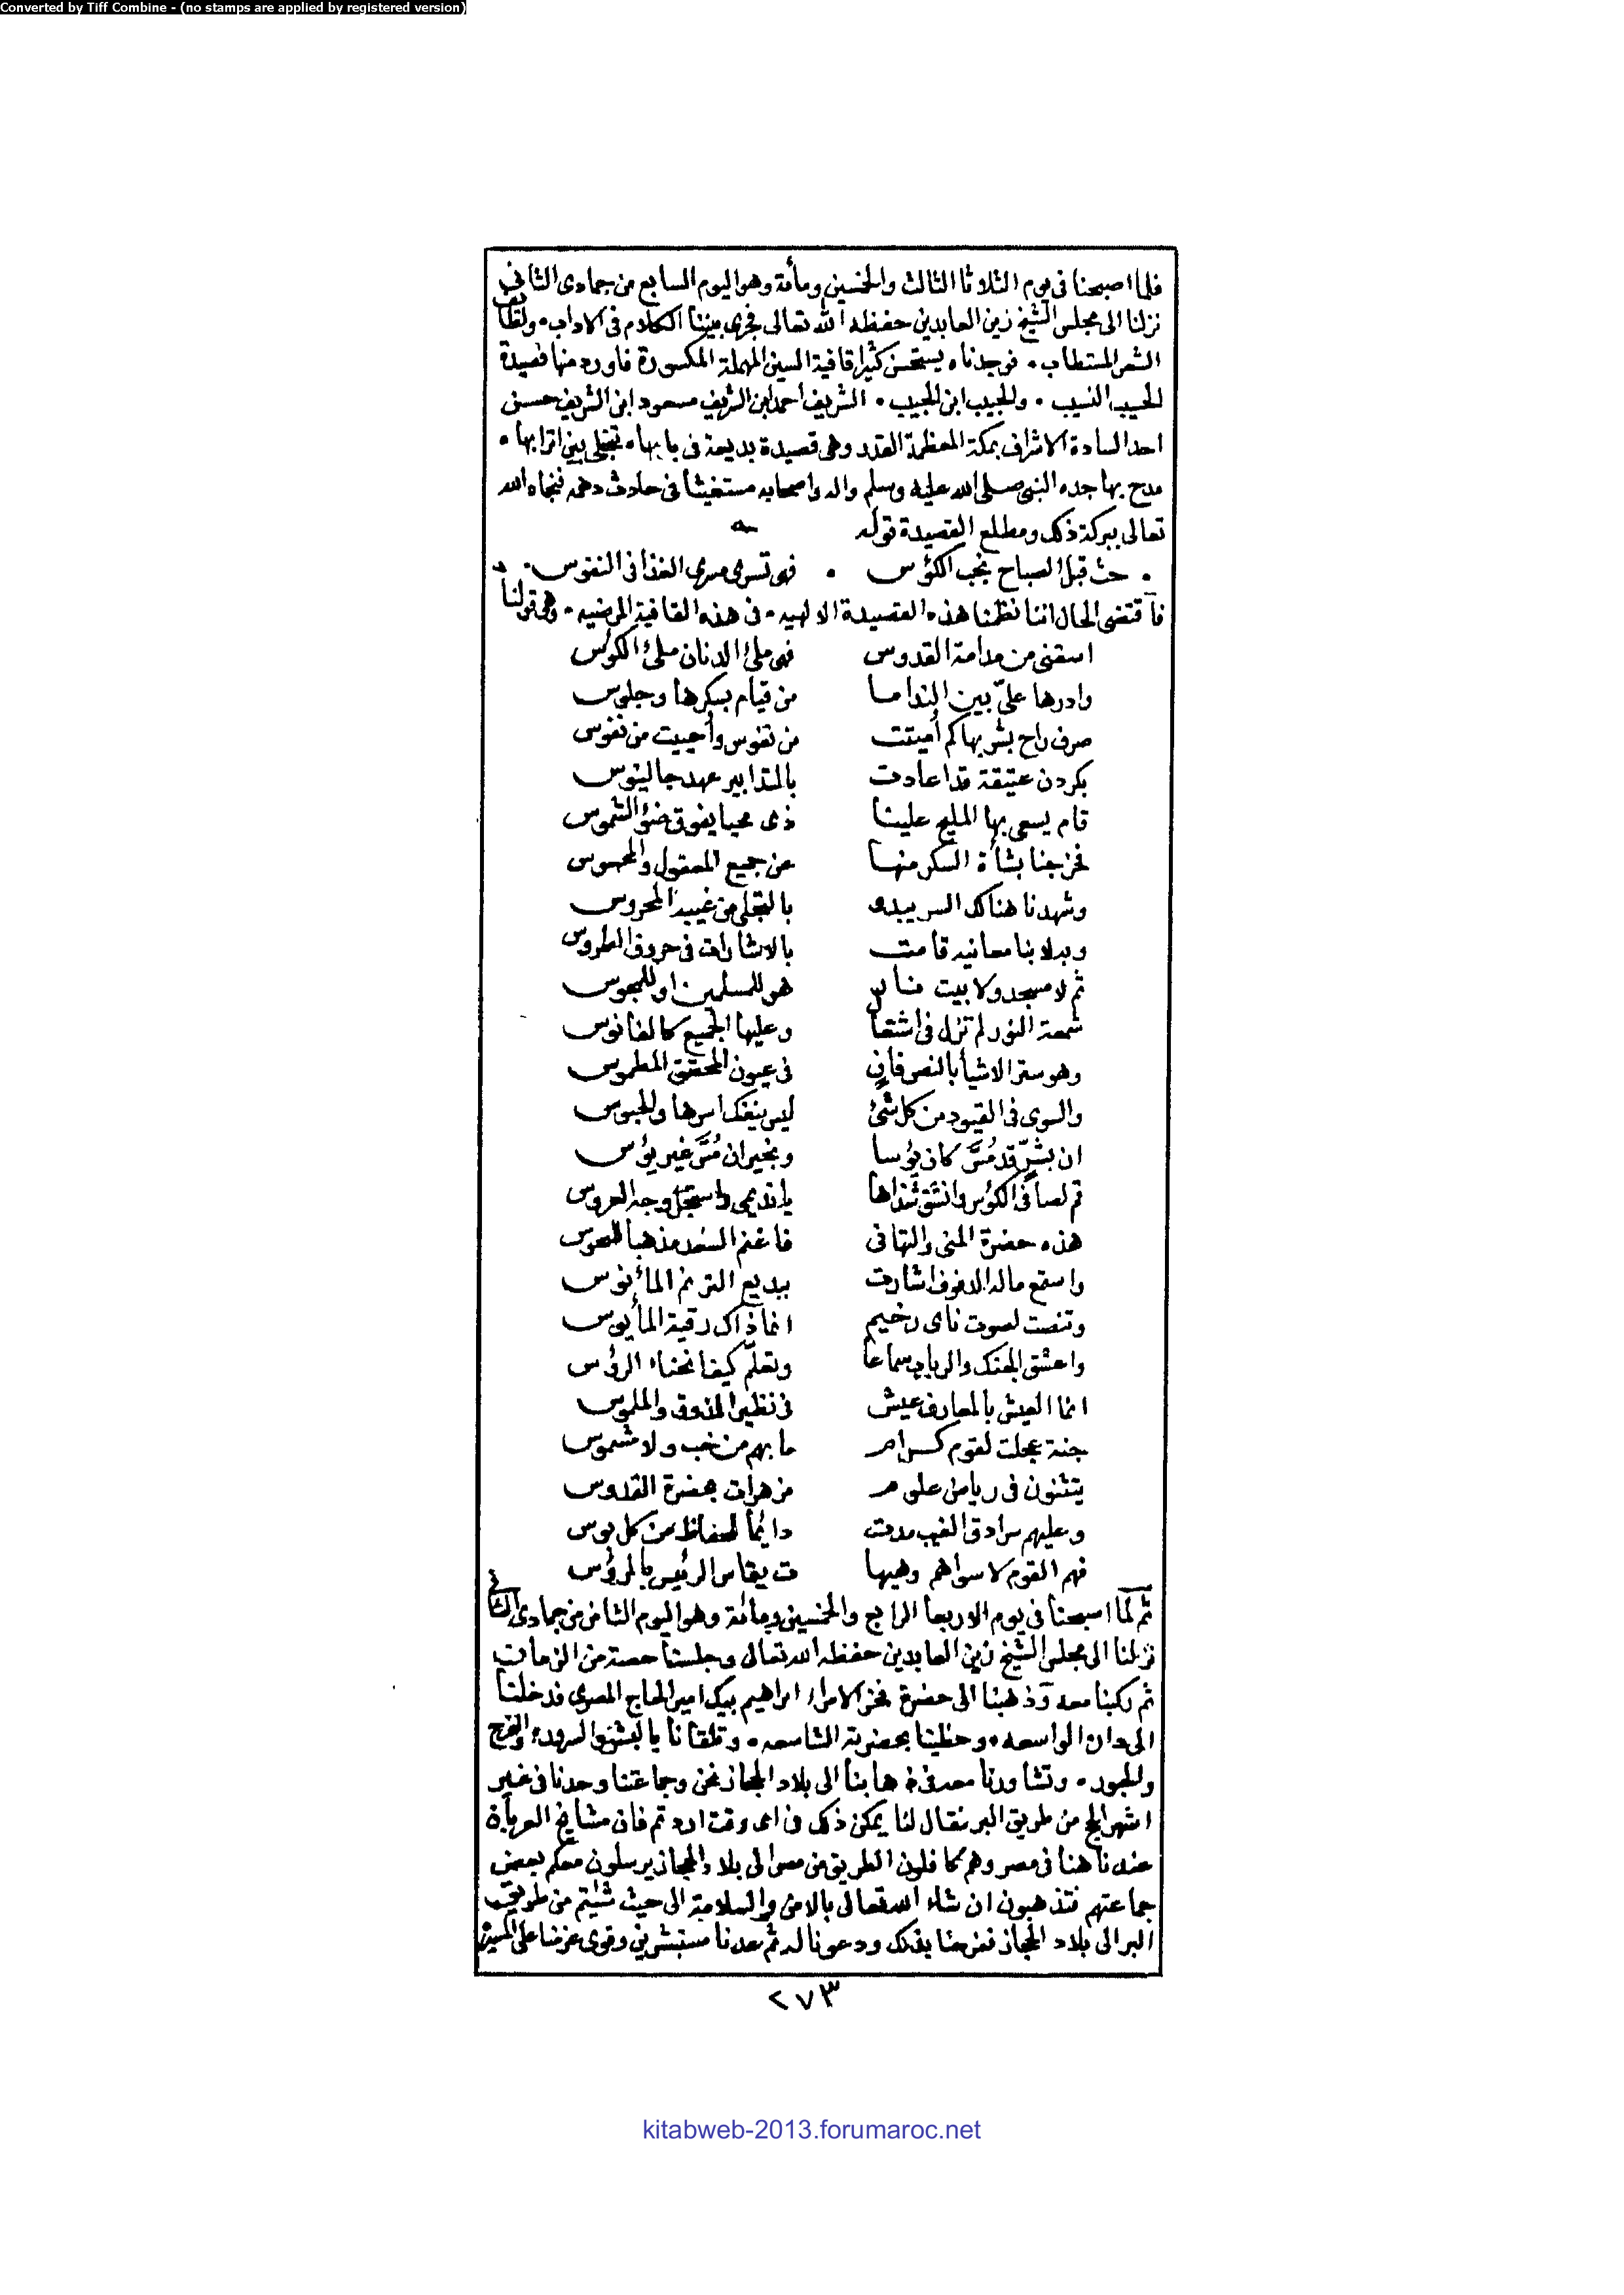 Converted by Tiff Combine - (no stamps are applied by registered version)
فلما اصبحنا في يوم الثلاثا الثالث والخمسين ومأمة وهو اليوم السابع من جمادى الثاني
نزلنا الى مجلس الشيخ زين العابدين حفظه الله تعالى فجرى بيننا الكلام في الاداب ولطائف
الشعر المستطاب . فوجدناه يستحسن كثيرا قافية السين المهملة المكسورة فاورد منها قصيدة
الحسيب النسيب . والجيب ابن الجيب . الشريف احمد ابن الشريف مسعود ابن الشريف حسن
احد السادة الاشراف بمكة المعظمة القدر وهي قصيدة بديعة في بابها . تجتلى بين اترابها .
مدح بها جده النبي صلى الله عليه وسلم واله واصحابه مستغيثا في حادث دهمه فنجاه الله
تعالى ببركة ذلك ومطلع القصيدة قوله
. حث قبل الصباح نجب الكؤس . فهى تسرى مسرى الغذا في النفوس .
فآقتضى الحال اننا نظمنا هذه القصيدة الالهيه . في هذه القافية المرضيه . وهي قولنا
اسقني من مدامة القدوس فهى ملئ الدنان ملئ الكؤس
وادرها عليّ بين الندامـا من قيام بسكرها وجلوس
صرف راح بشربها كم أميتت من نفوس وأحييت من نفوس
بكر دن عتيقة قد اعادت بالتدابير عهد جالينوس
قام يسعى بها المليح علينا ذى محيا يفوق ضؤ الشموس
فخرجنا بنشأة السكر منهـا عن جميع المعقول والمحسوس
وشهدنا هناك السر يبدو بالتجلي من غيبه المحروس
وبدلا بنا معانيه قامت بالاشارات في حروف الطروس
ثم لا مسجد ولا بيت نار هو للمسلمين او للمجوس
شمعة النور لم تزل في اشتعال وعليها الجميع كالفانوس
وهو ستر الاشيا بالنص فاني في عيون المحقق المطموس
والسوى في القيود من كل شئ ليس ينفك اسرها والحبوس
ان بشرّ قد مُسَّ كان يؤسا وبخير ان مُسَّ غير يؤس
قم لصافي الكؤس وانشق شذاها يا نديمى واستجل وجه العروس
هذه حضرة المنى والتهاني فاغنم السعد مذهبا للنحوس
واستمع ما له الدفوف اشارت ببديع الترنم المأنوس
وتنصت لصوت ناى رخيم انما ذاك رقية المأيوس
واعشق الجنك والرباب سماعا وتعلّم كيف انحناء الرؤس
انما العيش بالمعارف عيش في نظير المذوق والملموس
جنة عجلت لقوم كـرام ما بهم من خب ولا مشموس
يتثنون في رياض علوم مزهرات بحضرة القدوس
وعليهم سرادق الغيب مدت دائما للحفاظ من كل بوس
فهم القوم لا سواهم وهيها ت يقاس الرئيس بالمرؤس
ثم لما اصبحنا في يوم الاربعا الرابع والخمسين ومائة وهو اليوم الثامن من جمادى الثاني
نزلنا الى مجلس الشيخ زين العابدين حفظه الله تعالى وجلسنا حصة من الزمان
ثم ركبنا معه وذهبنا الى حضرة فخر الامراء ابراهيم بيك امير الحاج المصرى فدخلنا
الى داره الواسعه . وحظينا بحضرته الشاسعه . وتلقانا بالبشر والسرور . والفرح
والحبور . وتشاورنا معه في ذهابنا الى بلاد الحجاز نحن وجماعتنا وحدنا في غير
اشهر الحج من طريق البر فقال لنا يمكن ذلك في اى وقت اردتم فان مشايخ العربان
عندنا هنا في مصر وهم كافلون الطريق من مصر الى بلاد الحجاز يرسلون معكم بعض
جماعتهم فتذهبون ان شاء الله تعالى بالامن والسلامة الى حيث شئتم من طريق
البر الى بلاد الحجاز ففرحنا بذلك ودعونا له ثم عدنا مستبشرين وقوى عزمنا على المسير
٢٧٣
kitabweb-2013.forumaroc.net